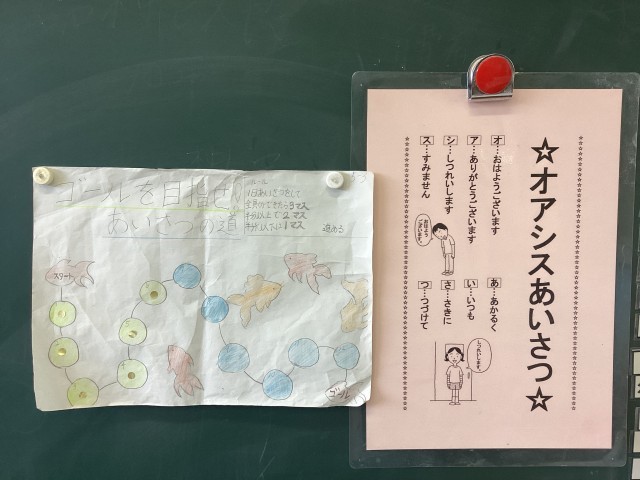 ゴールを目指せ
あいさつの道
ルール
1日あいさつをして
全員ができたら3マス
半分以上で2マス
半分以下は1マス
進める
スタート
ゴール
☆オアシスあいさつ☆
オ…おはようございます
ア…ありがとうございます
シ…しつれいします
ス…すみません
おはようございます。
あ…あかるく
い…いつも
さ…さきに
つ…つづけて
しつれいします。